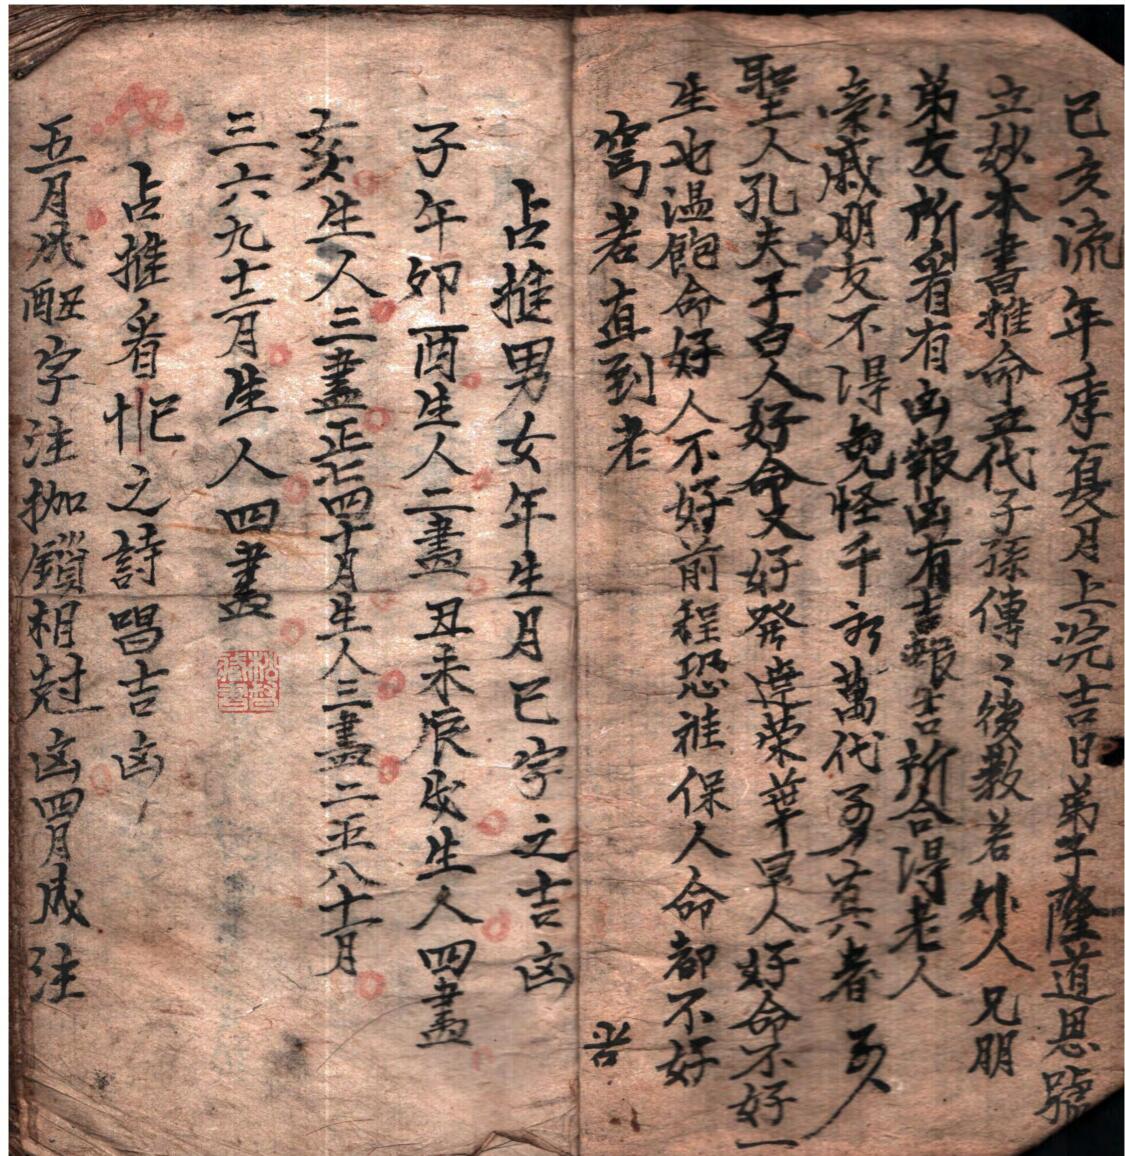 己亥流年季夏月上浣吉日弟子隆道恩號
立妙本書推命五代子孫傳〻後教若妙人兄朋
弟友所看有凶報凶有吉報吉所合得老人
親戚朋友不得見怪千秋萬代 真者
聖人孔夫子曰人好命又好發達榮華早人好命不好一
生也溫飽命好人不好前程恐难保人命都不好
苦
窮若直到老
占推男女年生月巳字之吉凶
子午卯酉生人二畫丑未辰戌生人四畫
亥生人三畫正七四十月生人三畫二五八十一月
三六九十二月生人四畫
占推看忙之詩唱吉凶
五月戌醜字注枷鎖相尅凶四月成注